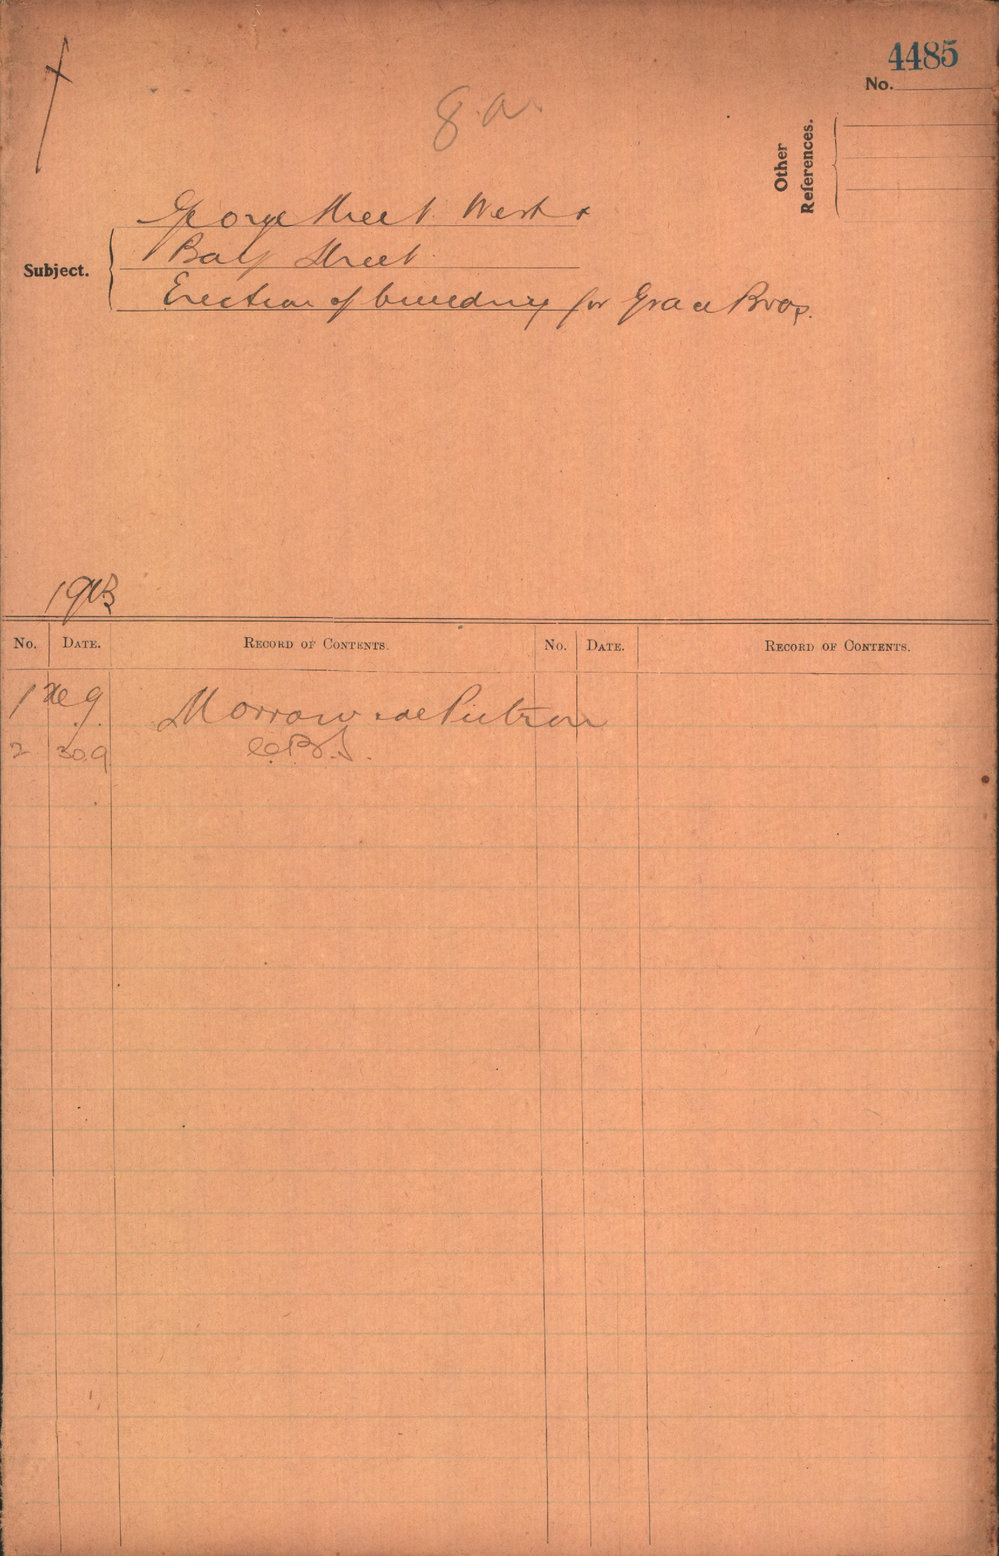 4485
No.
8.a.
Other
References.
George Street West &
Bay Street
Subject.
Erection of building for Grace Bros.
No. DATE. RECORD OF CONTENTS. No. DATE. RECORD OF CONTENTS.
1 9 Morrow & de Putron
2 30.9 C.B.S.